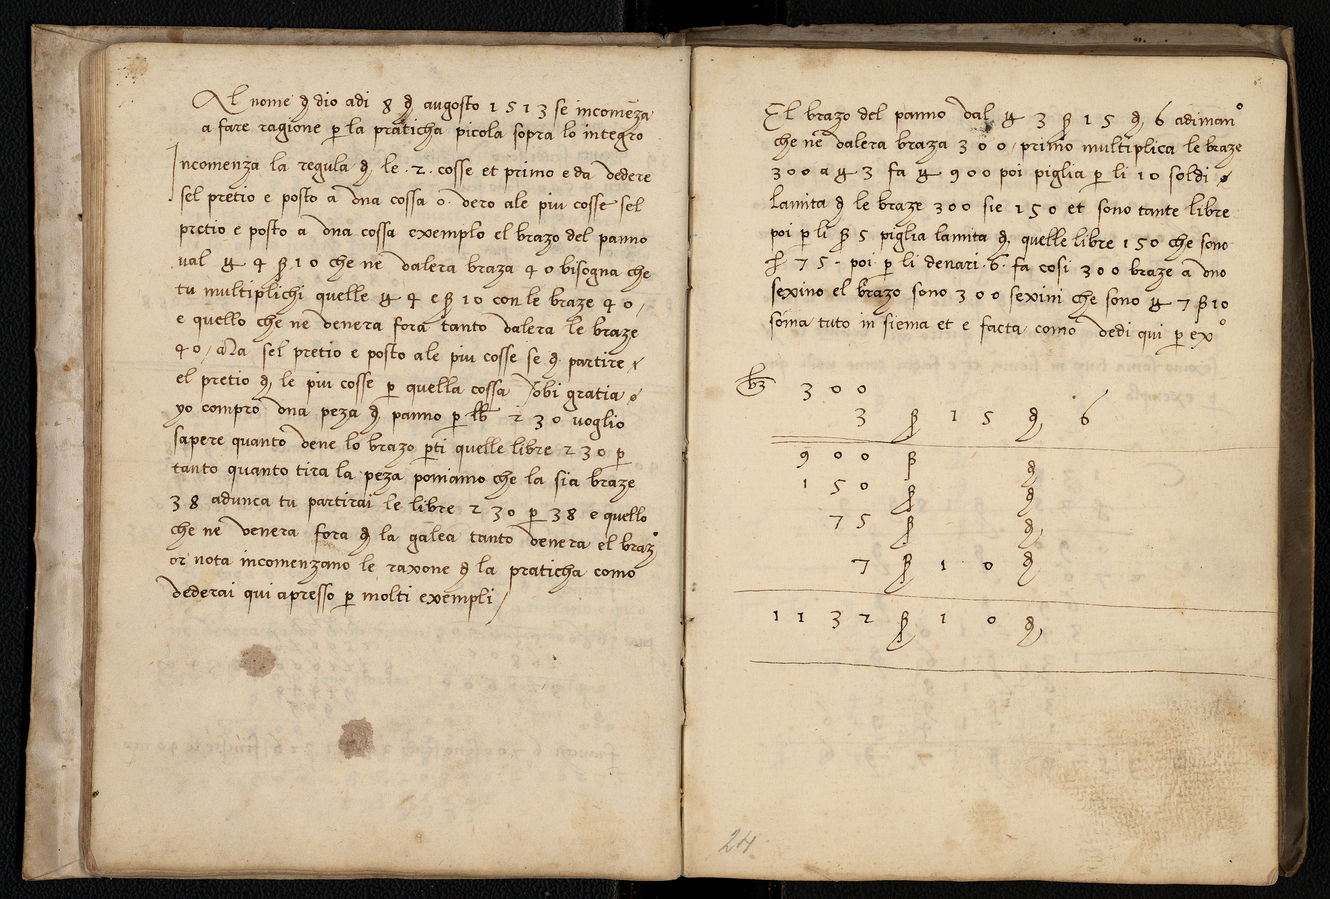 Al nome d dio adi 8 d augosto 1513 se incomēza
a fare ragione p la praticha picola sopra lo integro
Incomenza la regula d le ·2· cosse et primo e da vedere
sel pretio e posto a vna cossa o vero ale piu cosse sel
pretio e posto a vna cossa exemplo el brazo del panno
val 4 ß 10 che ne valera braza 40 bisogna che
tu multiplichi quelle 4 e ß 10 con le braze 40 /
e quello che ne venera fora tanto valera le braze
40 / Ma sel pretio e posto ale piu cosse se d partire
el pretio d le piu cosse p quella cossa Vbi gratia
yo compro vna peza d panno p lb 230 voglio
sapere quanto vene lo brazo pti quelle libre 230 p
tanto quanto tira la peza poniamo che la sia braze
38 adunca tu partirai le libre 230 p 38 e quello
che ne venera fora d la galea tanto venera el brazo
or nota incomenzano le raxone d la praticha como
vederai qui apresso p molti exempli /
El brazo del panno val 3 ß 15 d 6 adimano
che ne valera braza 300 / primo multiplica le braze
300 a 3 fa 900 poi piglia p li 10 soldi
lamita d le braze 300 sie 150 et sono tante libre
poi p li ß 5 piglia lamita d quelle libre 150 che sono
75 · poi p li denari ·6· fa cosi 300 braze a vno
sexino el brazo sono 300 sexini che sono 7 ß 10
soma tuto in siema et e facta como vedi qui p exo
bz 300
3 ß 15 d 6
900 ß d
150 ß d
75 ß d
7 ß 10 d
1132 ß 10 d
24